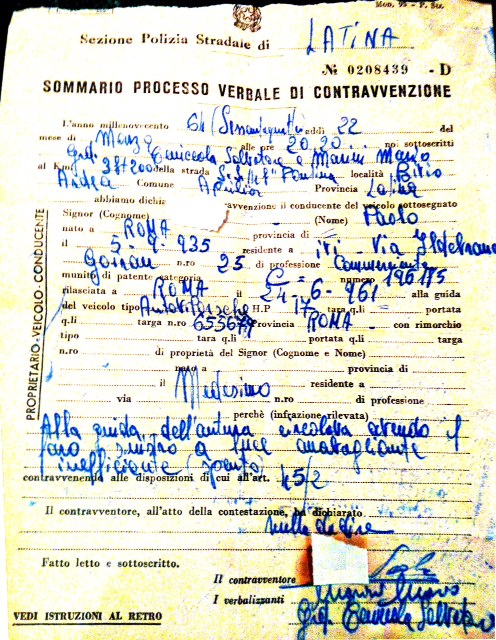 Mod. 95 - P. Str.
Sezione Polizia Stradale di LATINA
№ 0208439 - D
SOMMARIO PROCESSO VERBALE DI CONTRAVVENZIONE
L'anno millenovecento 64 (Sessantaquattro) addì 22 del
mese di Marzo alle ore 20.20 noi sottoscritti
Grd. Salvatore e Marini Mario
al Km. 38+200 della strada S.S. 148 "Pontina" località
Comune Aprilia Provincia Latina
abbiamo dichia ravvenzione il conducente del veicolo sottosegnato
Signor (Cognome) (Nome) Paolo
nato a ROMA provincia di
il 5-9-935 residente a ivi - Via Ildebrando
n.ro 25 di professione Commerciante
munito di patente categoria C numero 196175
rilasciata a ROMA il 24-6-961 alla guida
del veicolo tipo Autov. Porsche H.P. 17 tara q.li portata
q.li targa n.ro 655679 Provincia ROMA con rimorchio
tipo tara q.li portata q.li targa
n.ro di proprietà del Signor (Cognome e Nome)
nato a provincia di
il Medesimo residente a
via n.ro di professione
perchè (infrazione rilevata)
Alla guida dell'autov. circolava avendo il
faro sinistro a luce anabbagliante
inefficiente (spento)
contravvenendo alle disposizioni di cui all'art. 45/2
Il contravventore, all'atto della contestazione, ha dichiarato
nulla da dire
Fatto letto e sottoscritto.
Il contravventore
I verbalizzanti Marini Mario
Grd. Salvatore
VEDI ISTRUZIONI AL RETRO
PROPRIETARIO - VEICOLO - CONDUCENTE